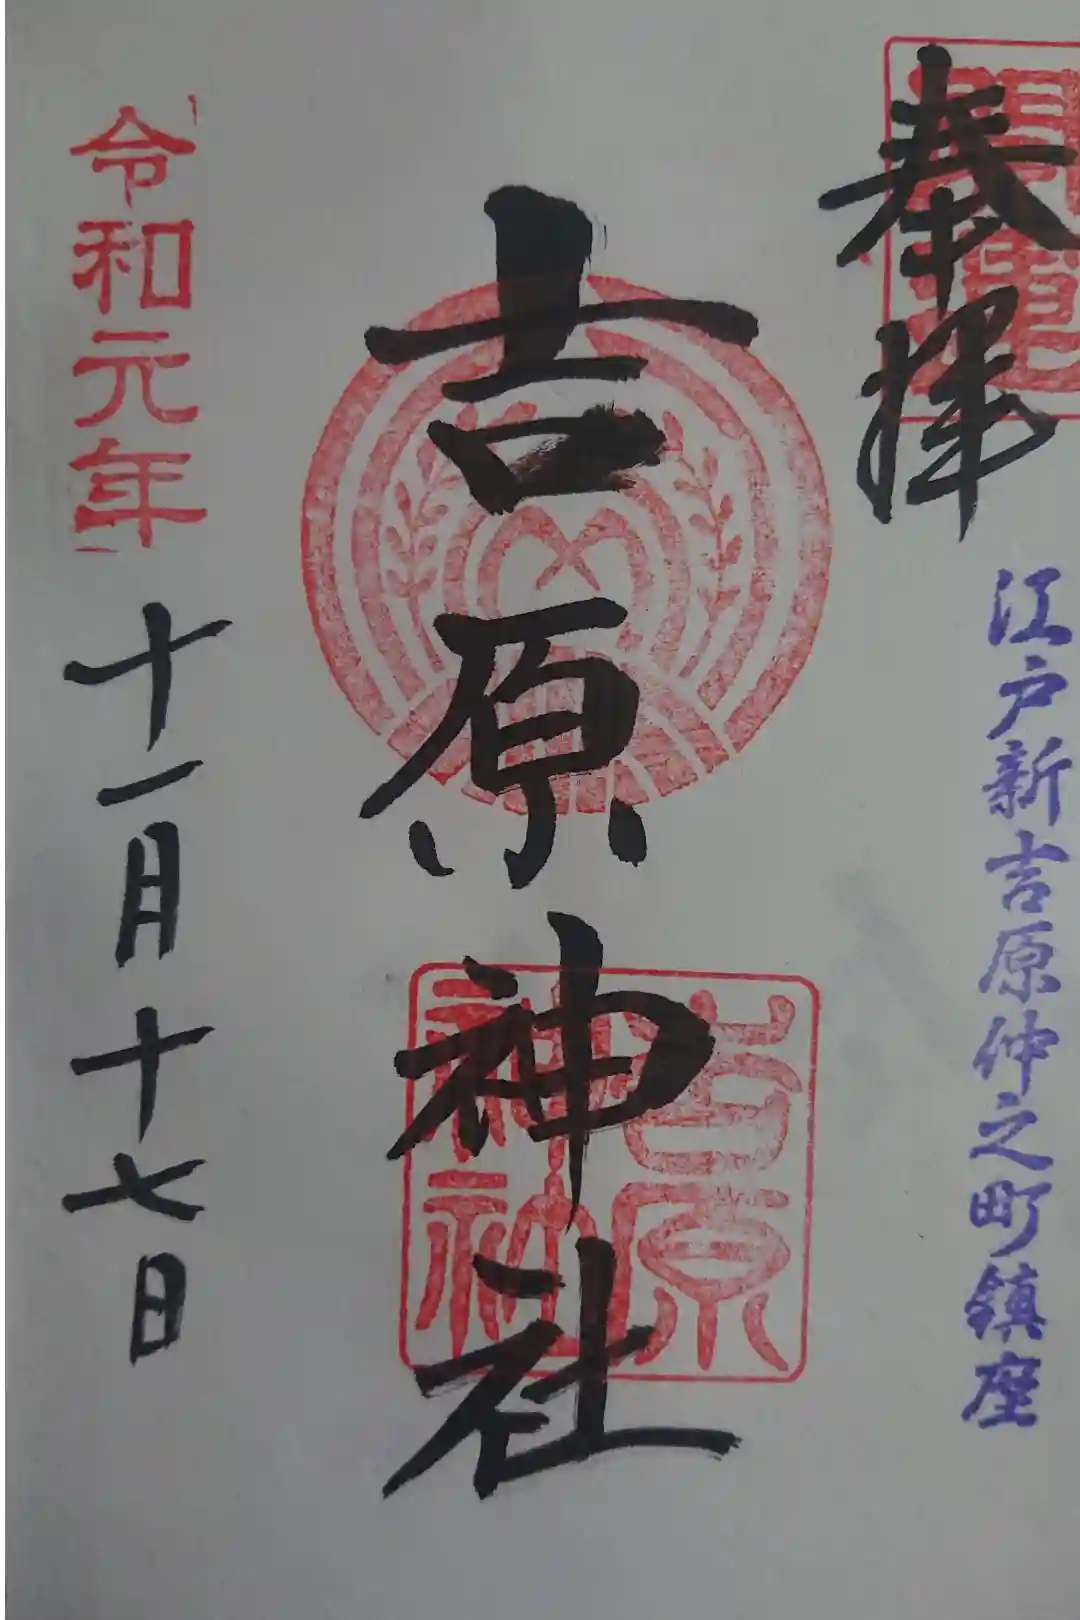 奉拝
江戸新吉原仲之町鎮座
吉原神社
吉原
神社
令和元年十一月十七日